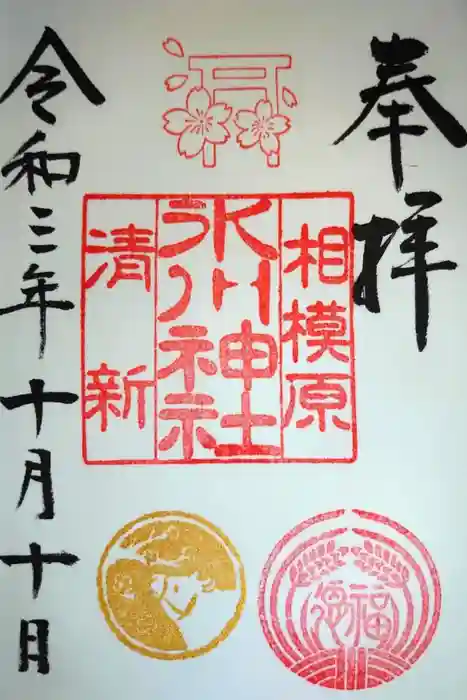 奉拝
相模原
氷川神社
清新
令和三年十月十日
福徳